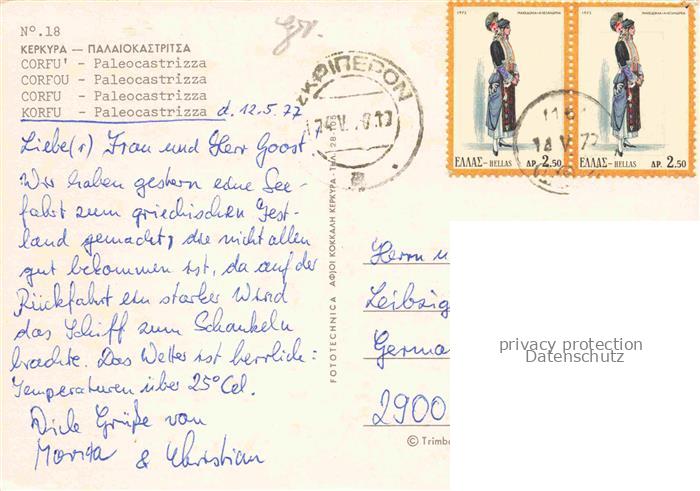 Nº.18
ΚΕΡΚΥΡΑ — ΠΑΛΑΙΟΚΑΣΤΡΙΤΣΑ
CORFU' - Paleocastrizza
CORFOU - Paleocastrizza
CORFU - Paleocastrizza
KORFU - Paleocastrizza d. 12.5.77
Liebe(r) Frau und Herr Goost
Wir haben gestern eine See-
fahrt zum griechischen Fest-
land gemacht, die nicht allen
gut bekommen ist, da auf der
Rückfahrt ein starker Wind
das Schiff zum Schaukeln
brachte. Das Wetter ist herrlich:
Temperaturen über 25° Cel.
Viele Grüße von
& Christian
FOTOTECHNICA ΑΦΟΙ ΚΟΚΚΑΛΗ ΚΕΡΚΥΡΑ - ΤΗΛ.
ΣΚΡΙΠΕΡΟΝ
1972
ΕΛΛΑΣ-HELLAS ΔΡ. 2.50
1972
ΕΛΛΑΣ-HELLAS ΔΡ. 2.50
14 V 77
Herrn u
Leibzig
Germa
2900
© Trimb
privacy protection
Datenschutz